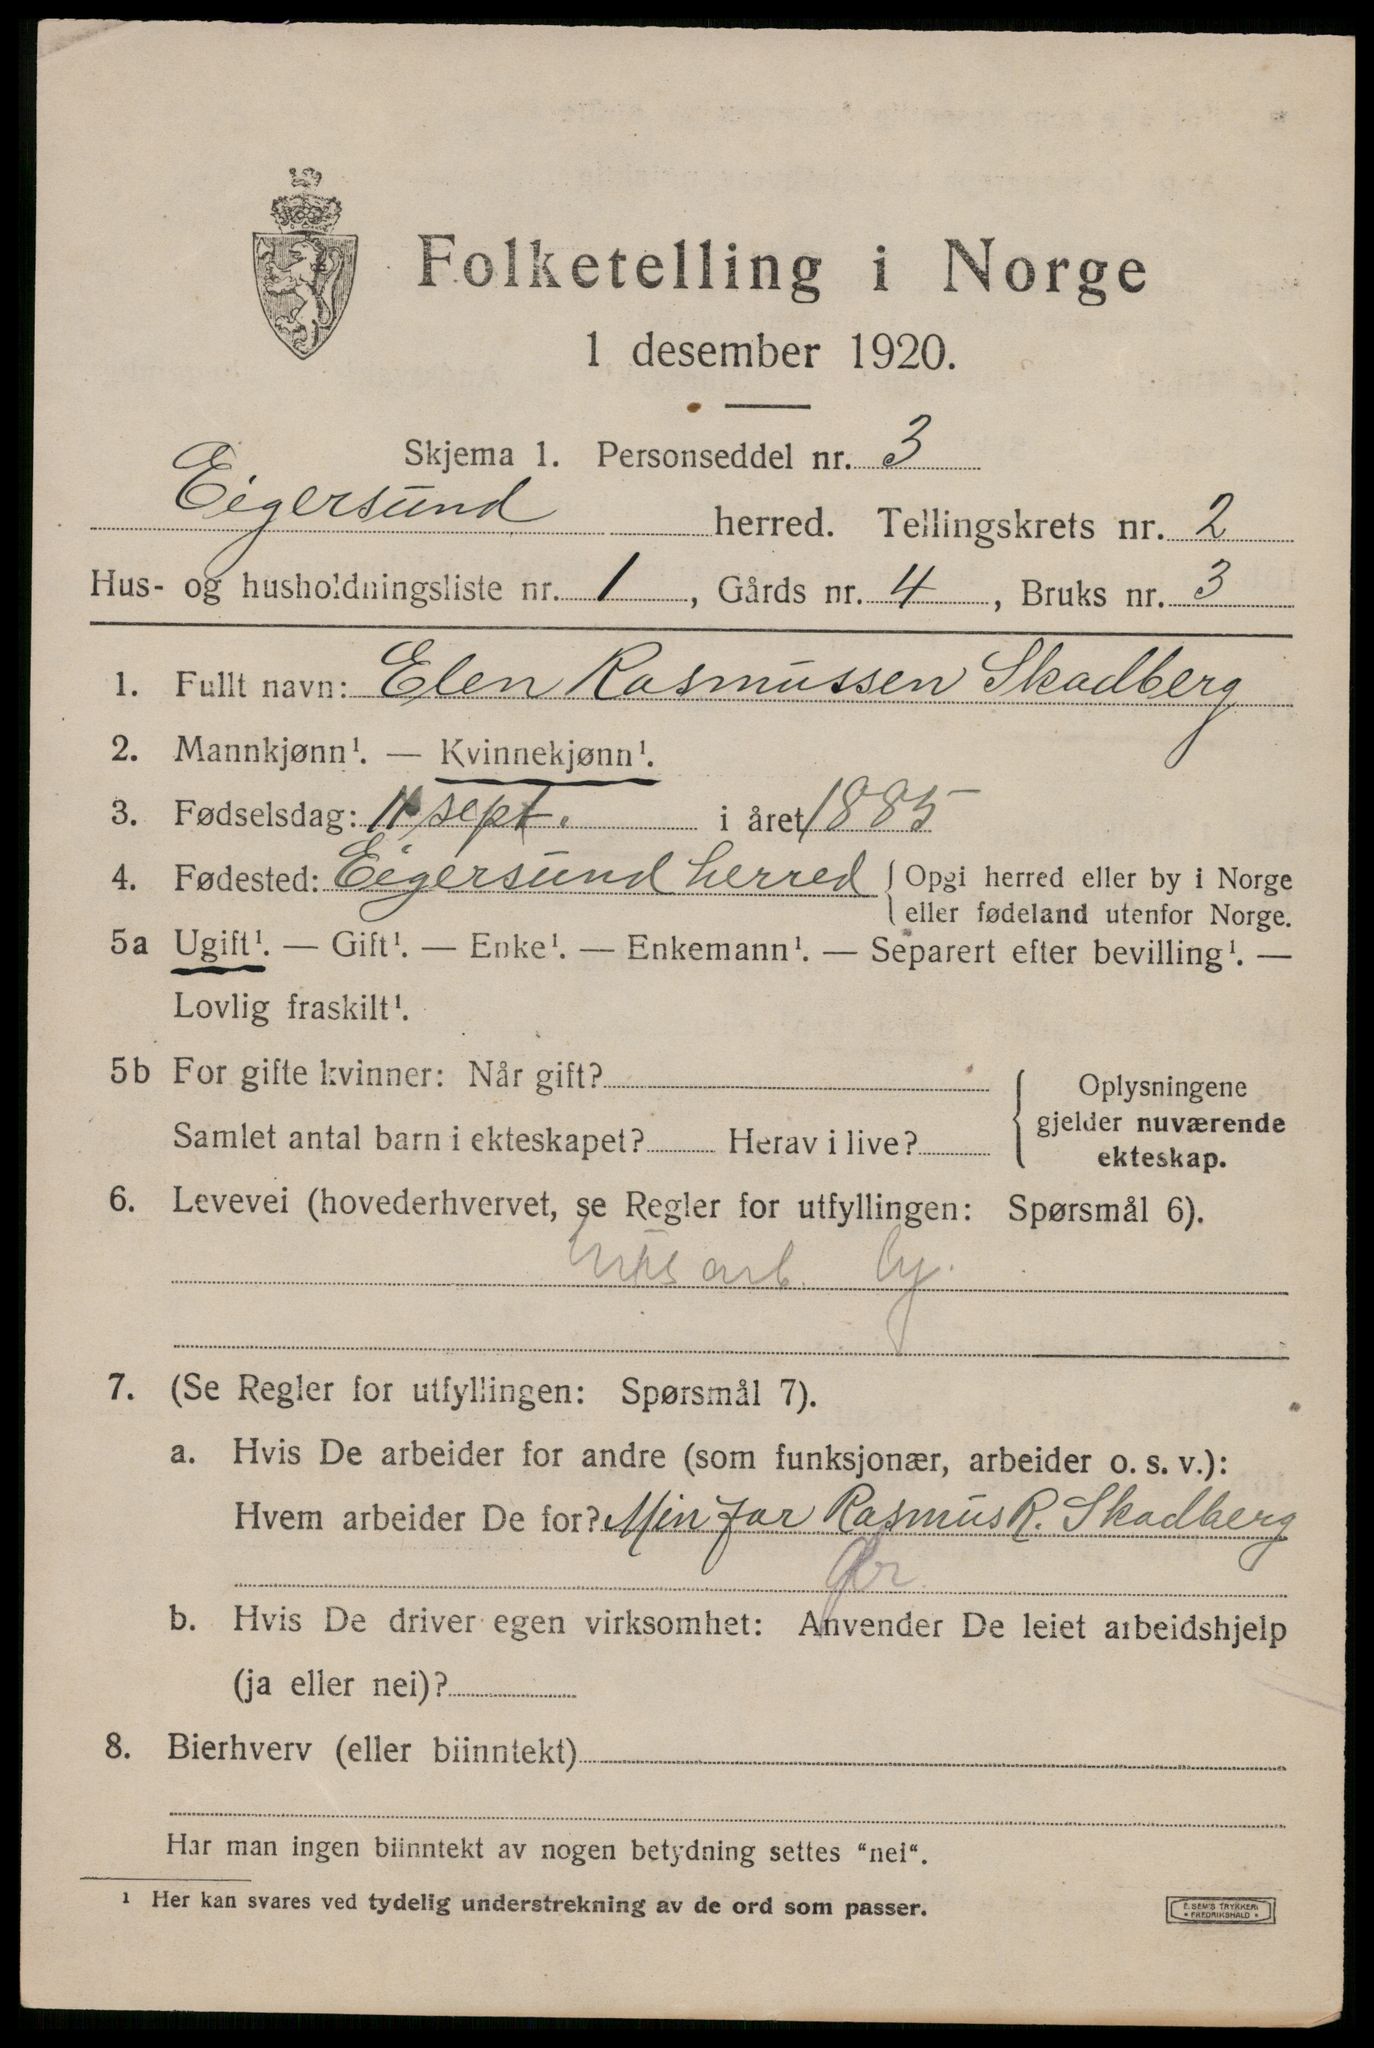 Folketelling i Norge
1 desember 1920.
Skjema 1. Personseddel nr. 3
Eigersund herred. Tellingskrets nr. 2
Hus- og husholdningsliste nr. 1, Gårds nr. 4, Bruks nr. 3
1. Fullt navn: Elen Rasmussen Skadberg
2. Mannkjønn¹. — Kvinnekjønn¹.
3. Fødselsdag: 11 sept. i året 1885
4. Fødested: Eigersund herred { Opgi herred eller by i Norge
eller fødeland utenfor Norge.
5a Ugift¹. — Gift¹. — Enke¹. — Enkemann¹. — Separert efter bevilling¹. —
Lovlig fraskilt¹.
5b For gifte kvinner: Når gift?
Samlet antal barn i ekteskapet? Herav i live?
Oplysningene
gjelder nuværende
ekteskap.
6. Levevei (hovederhvervet, se Regler for utfyllingen: Spørsmål 6).
arb.
7. (Se Regler for utfyllingen: Spørsmål 7).
a. Hvis De arbeider for andre (som funksjonær, arbeider o. s. v.):
Hvem arbeider De for? Min far Rasmus R. Skadberg
b. Hvis De driver egen virksomhet: Anvender De leiet arbeidshjelp
(ja eller nei)?
8. Bierhverv (eller biinntekt)
Har man ingen biinntekt av nogen betydning settes "nei".
¹ Her kan svares ved tydelig understrekning av de ord som passer.
E. SEM'S TRYKKERI
• FREDRIKSHALD •